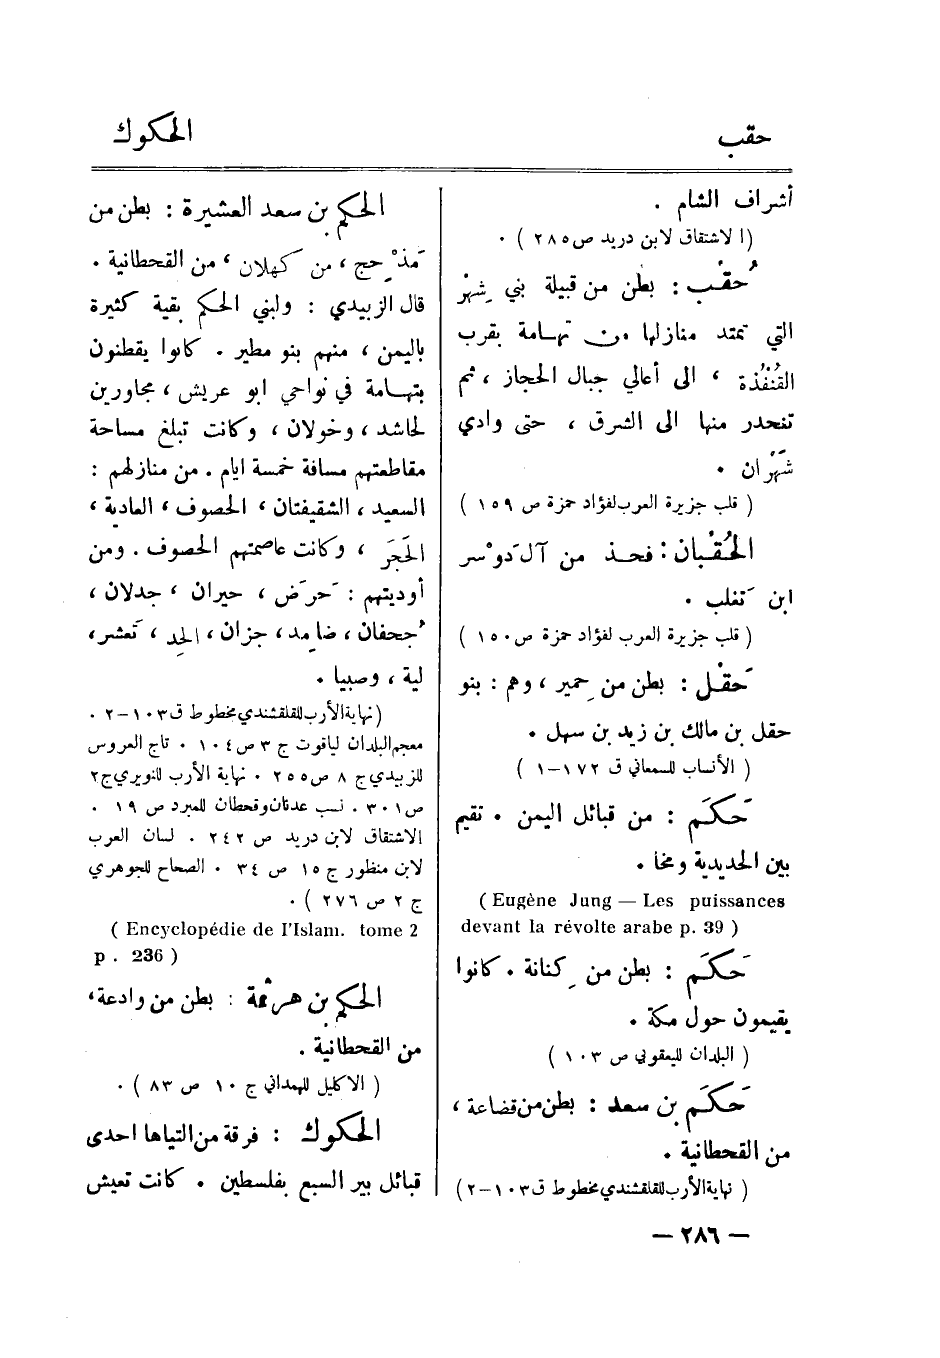 حقب
الحكوك
أشراف الشام .
( الاشتقاق لابن دريد ص ٢٨٥ ) .
حُقْب : بطن من قبيلة بني شِهْر
التي تمتد منازلها من تهامة بقرب
القُنْفُذة ، الى أعالي جبال الحجاز ، ثم
تنحدر منها الى الشرق ، حتى وادي
شَهْران .
( قلب جزيرة العرب لفؤاد حمزة ص ١٥٩ )
الحُقْبان : فخذ من آل دَوْسر
ابن تَغلب .
( قلب جزيرة العرب لفؤاد حمزة ص ١٥٠ )
حَقْل : بطن من حِمير ، وهم : بنو
حقل بن مالك بن زيد بن سهل .
( الأنساب للسمعاني ق ١٧٢-١ )
حَكَم : من قبائل اليمن . تقيم
بين الحديدية ومخا .
( Eugène Jung — Les puissances
devant la révolte arabe p. 39 )
حَكَم : بطن من كِنانة . كانوا
يقيمون حول مكة .
( البلدان لليعقوبي ص ١٠٣ )
حَكَم بن سعد : بطن من قضاعة ،
من القحطانية .
( نهاية الأرب للقلقشندي مخطوط ق ١٠٣-٢ )
الحكم بن سعد العشيرة : بطن من
مَذْحِج ، من كهلان ، من القحطانية .
قال الزبيدي : ولبني الحكم بقية كثيرة
باليمن ، منهم بنو مطير . كانوا يقطنون
بتهامة في نواحي ابو عريش ، مجاورين
لحاشد ، وخولان ، وكانت تبلغ مساحة
مقاطعتهم مسافة خمسة ايام . من منازلهم :
السعيد ، الشقيفتان ، الحصوف ، العادية ،
الحَجَر ، وكانت عاصمتهم الحصوف . ومن
أوديتهم : حَرَض ، حيران ، جدلان ،
جُحفان ، ضامِد ، جزان ، الحِد ، تَعشر ،
لية ، وصبيا .
( نهاية الأرب للقلقشندي مخطوط ق ١٠٣-٢ .
معجم البلدان لياقوت ج ٣ ص ١٠٤ . تاج العروس
للزبيدي ج ٨ ص ٢٥٥ . نهاية الأرب للنويري ج ٢
ص ٣٠١ . نسب عدنان وقحطان للمبرد ص ١٩ .
الاشتقاق لابن دريد ص ٢٤٢ . لسان العرب
لابن منظور ج ١٥ ص ٣٤ . الصحاح للجوهري
ج ٢ ص ٢٧٦ ) .
( Encyclopédie de l'Islam. tome 2
p . 236 )
الحكم بن هرثمة : بطن من وادعة ،
من القحطانية .
( الاكليل للهمداني ج ١٠ ص ٨٣ ) .
الحكوك : فرقة من التياها احدى
قبائل بير السبع بفلسطين . كانت تعيش
— ٢٨٦ —